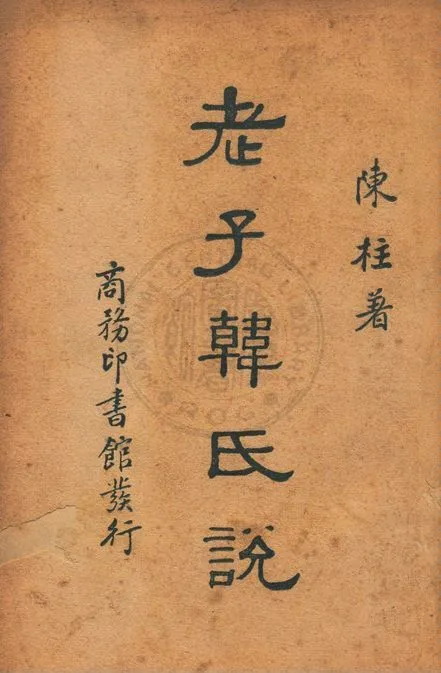 陳柱著
老子韓氏說
商務印書館發行